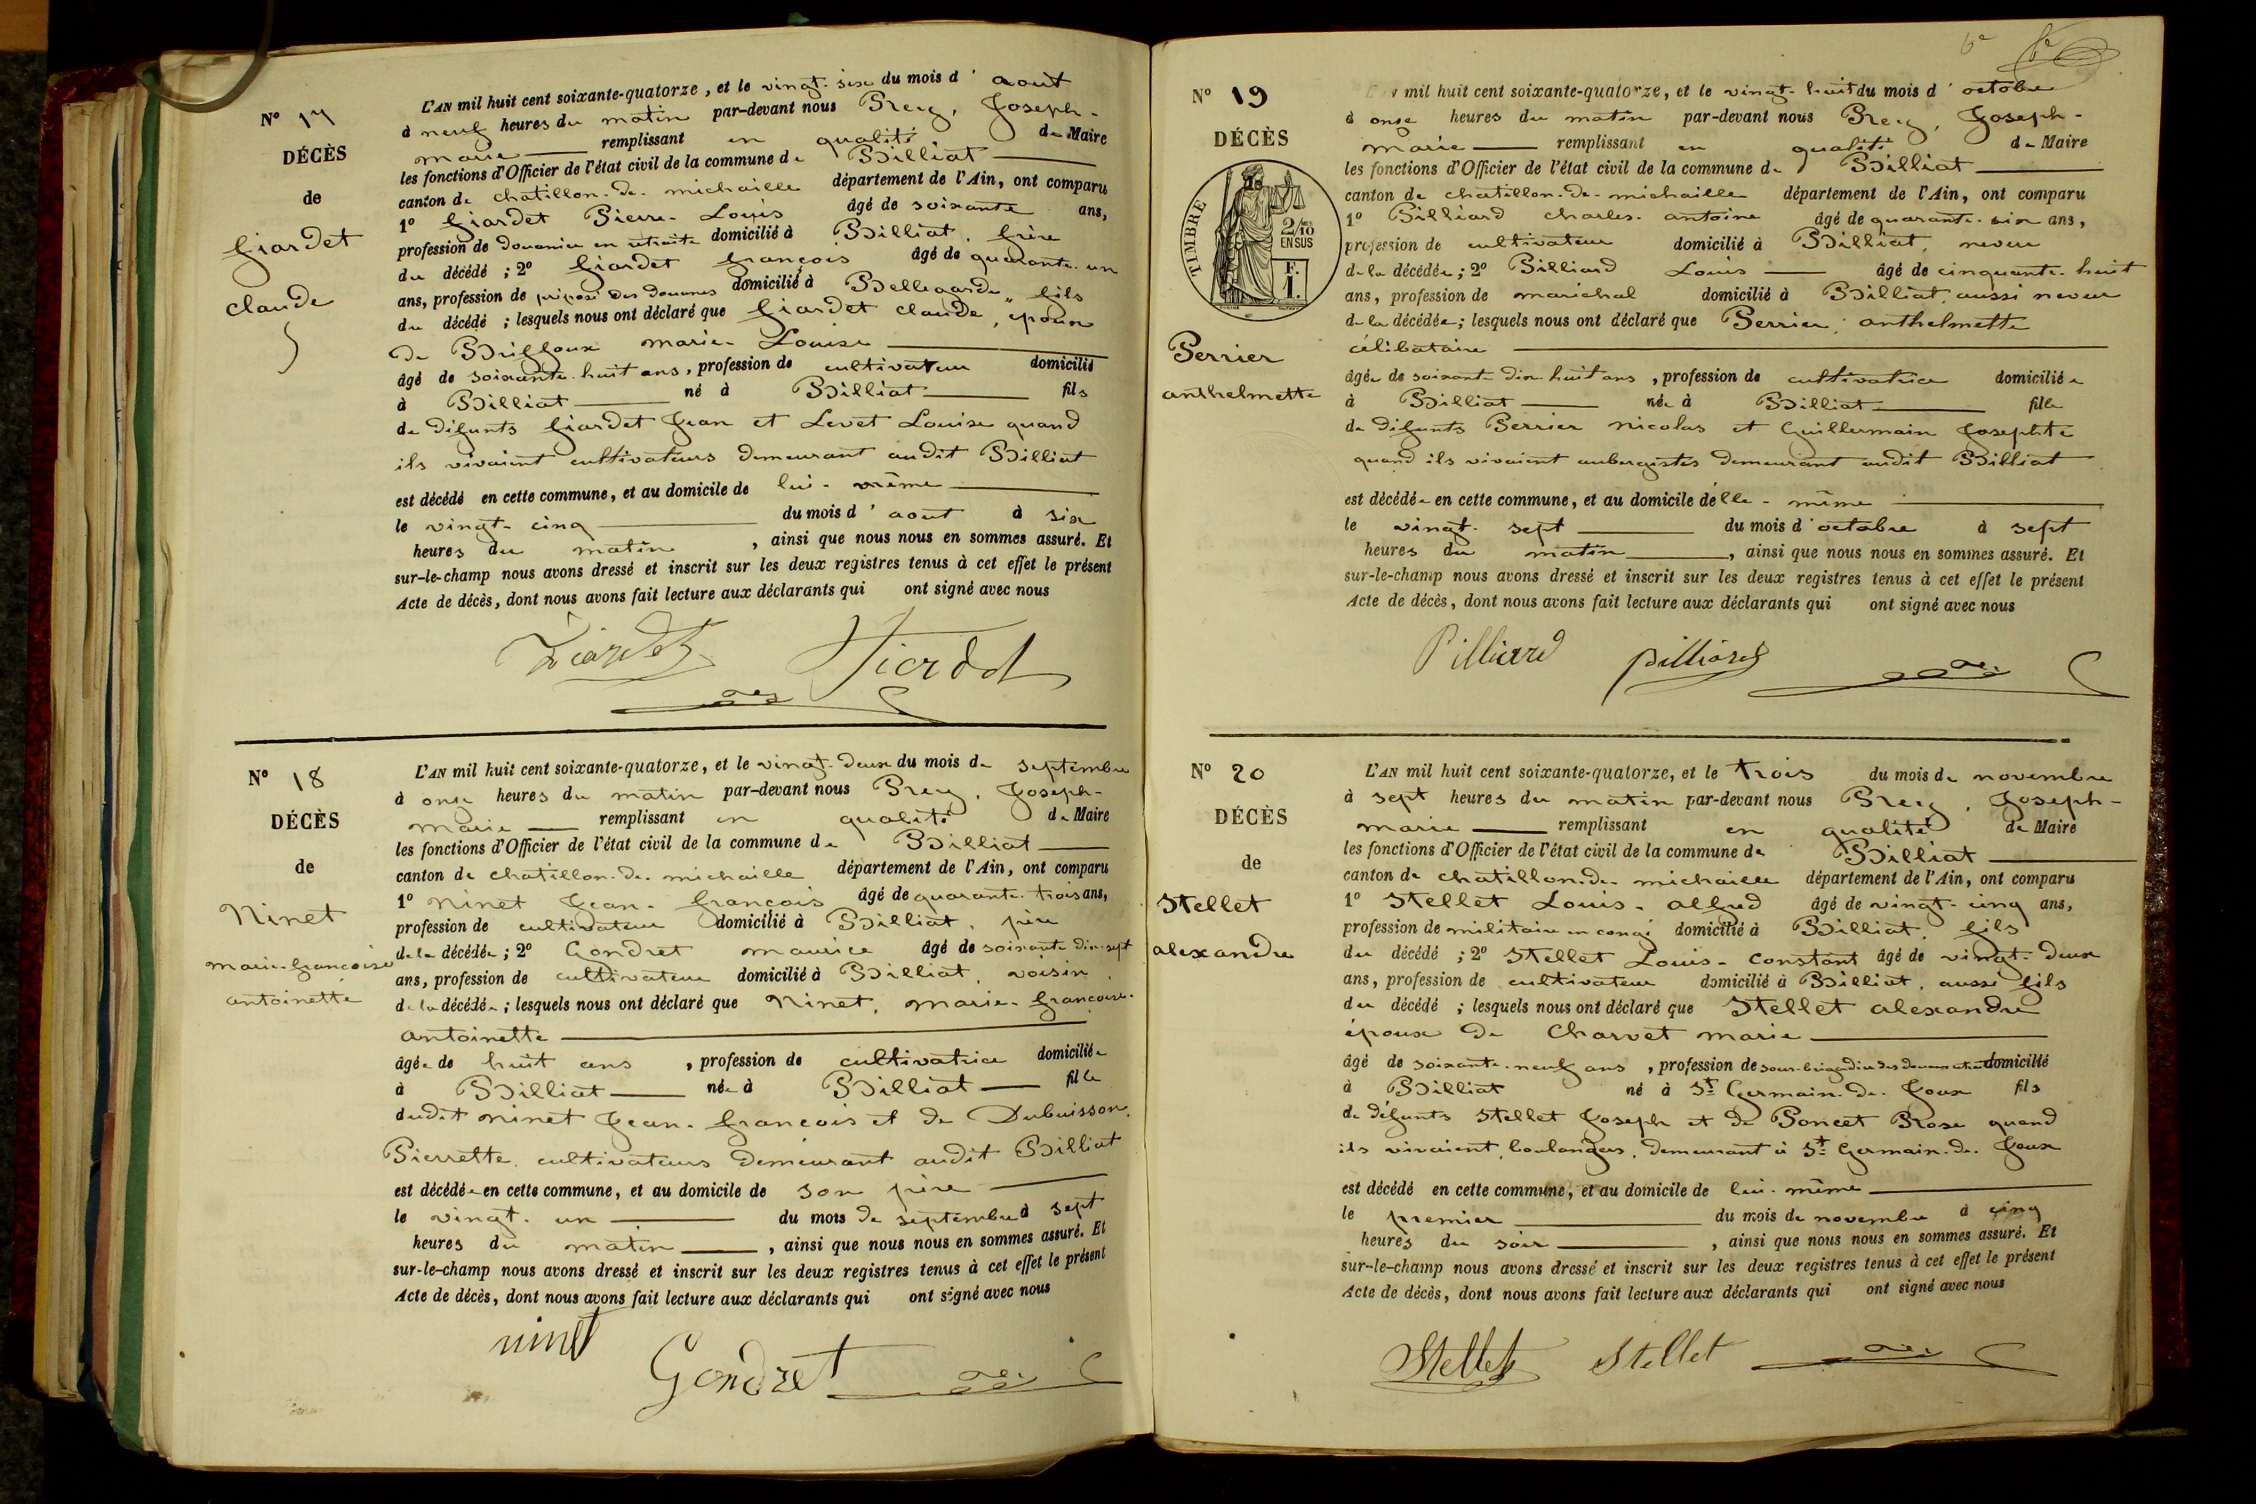 N° 17
DÉCÈS
de
Fiardet
Claude
L'AN mil huit cent soixante-quatorze, et le vingt-six du mois d'aout
à neuf heures du matin par-devant nous Prery, Joseph-
marie remplissant en qualité de Maire
les fonctions d'Officier de l'état civil de la commune de Billiat
canton de chatillon-de-michaille département de l'Ain, ont comparu
1° Fiardet Pierre-Louis âgé de soixante ans,
profession de douanier en retraite domicilié à Billiat, frère
du décédé ; 2° Fiardet françois âgé de quarante-un
ans, profession de préposé des douanes domicilié à Bellegarde, fils
du décédé ; lesquels nous ont déclaré que Fiardet claude, époux
de Briffoux marie-Louise
âgé de soixante-huit ans, profession de cultivateur domicilié
à Billiat né à Billiat fils
de défunts Fiardet Jean et Levet Louise quand
ils vivaient cultivateurs demeurant audit Billiat
est décédé en cette commune, et au domicile de lui-même
le vingt-cinq du mois d'aout à six
heures du matin, ainsi que nous nous en sommes assuré. Et
sur-le-champ nous avons dressé et inscrit sur les deux registres tenus à cet effet le présent
Acte de décès, dont nous avons fait lecture aux déclarants qui ont signé avec nous
Fiardet Fiardet
N° 18
DÉCÈS
de
Ninet
marie-françoise
antoinette
L'AN mil huit cent soixante-quatorze, et le vingt-deux du mois de septembre
à onze heures du matin par-devant nous Prery, Joseph-
marie remplissant en qualité de Maire
les fonctions d'Officier de l'état civil de la commune de Billiat
canton de chatillon-de-michaille département de l'Ain, ont comparu
1° Ninet Jean-françois âgé de quarante-trois ans,
profession de cultivateur domicilié à Billiat, père
de la décédée ; 2° Gondret maurice âgé de soixante-dix-sept
ans, profession de cultivateur domicilié à Billiat, voisin
de la décédée ; lesquels nous ont déclaré que Ninet, marie-françoise-
antoinette
âgée de huit ans, profession de cultivatrice domiciliée
à Billiat née à Billiat fille
dudit Ninet Jean-françois et de Dubuisson
Pierrette cultivateurs demeurant audit Billiat
est décédée en cette commune, et au domicile de son père
le vingt-un du mois de septembre à sept
heures du matin, ainsi que nous nous en sommes assuré. Et
sur-le-champ nous avons dressé et inscrit sur les deux registres tenus à cet effet le présent
Acte de décès, dont nous avons fait lecture aux déclarants qui ont signé avec nous
ninet Gondret
6e
N° 19
DÉCÈS
TIMBRE
2/10
EN SUS
F.
1.
Perrier
anthelmette
L'AN mil huit cent soixante-quatorze, et le vingt-huit du mois d'octobre
à onze heures du matin par-devant nous Prery, Joseph-
marie remplissant en qualité de Maire
les fonctions d'Officier de l'état civil de la commune de Billiat
canton de chatillon-de-michaille département de l'Ain, ont comparu
1° Billiard charles-antoine âgé de quarante-six ans,
profession de cultivateur domicilié à Billiat, neveu
de la décédée ; 2° Billiard Louis âgé de cinquante-huit
ans, profession de maréchal domicilié à Billiat, aussi neveu
de la décédée ; lesquels nous ont déclaré que Perrier, anthelmette
célibataire
âgée de soixante-dix-huit ans, profession de cultivatrice domiciliée
à Billiat née à Billiat fille
de défunts Perrier nicolas et Guillermain Josephte
quand ils vivaient aubergistes demeurant audit Billiat
est décédée en cette commune, et au domicile d'elle-même
le vingt-sept du mois d'octobre à sept
heures du matin, ainsi que nous nous en sommes assuré. Et
sur-le-champ nous avons dressé et inscrit sur les deux registres tenus à cet effet le présent
Acte de décès, dont nous avons fait lecture aux déclarants qui ont signé avec nous
Billiard billiard
N° 20
DÉCÈS
de
Stellet
alexandre
L'AN mil huit cent soixante-quatorze, et le trois du mois de novembre
à sept heures du matin par-devant nous Prery, Joseph-
marie remplissant en qualité de Maire
les fonctions d'Officier de l'état civil de la commune de Billiat
canton de chatillon-de-michaille département de l'Ain, ont comparu
1° Stellet Louis-alfred âgé de vingt-cinq ans,
profession de militaire en congé domicilié à Billiat, fils
du décédé ; 2° Stellet Louis-constant âgé de vingt-deux
ans, profession de cultivateur domicilié à Billiat, aussi fils
du décédé ; lesquels nous ont déclaré que Stellet alexandre
époux de Charvet marie
âgé de soixante-neuf ans, profession de sous-brigadier des douanes domicilié
à Billiat né à St Germain-de-Joux fils
de défunts Stellet Joseph et de Poncet Rose quand
ils vivaient, boulangers, demeurant à St Germain-de-Joux
est décédé en cette commune, et au domicile de lui-même
le premier du mois de novembre à cinq
heures du soir, ainsi que nous nous en sommes assuré. Et
sur-le-champ nous avons dressé et inscrit sur les deux registres tenus à cet effet le présent
Acte de décès, dont nous avons fait lecture aux déclarants qui ont signé avec nous
Stellet Stellet